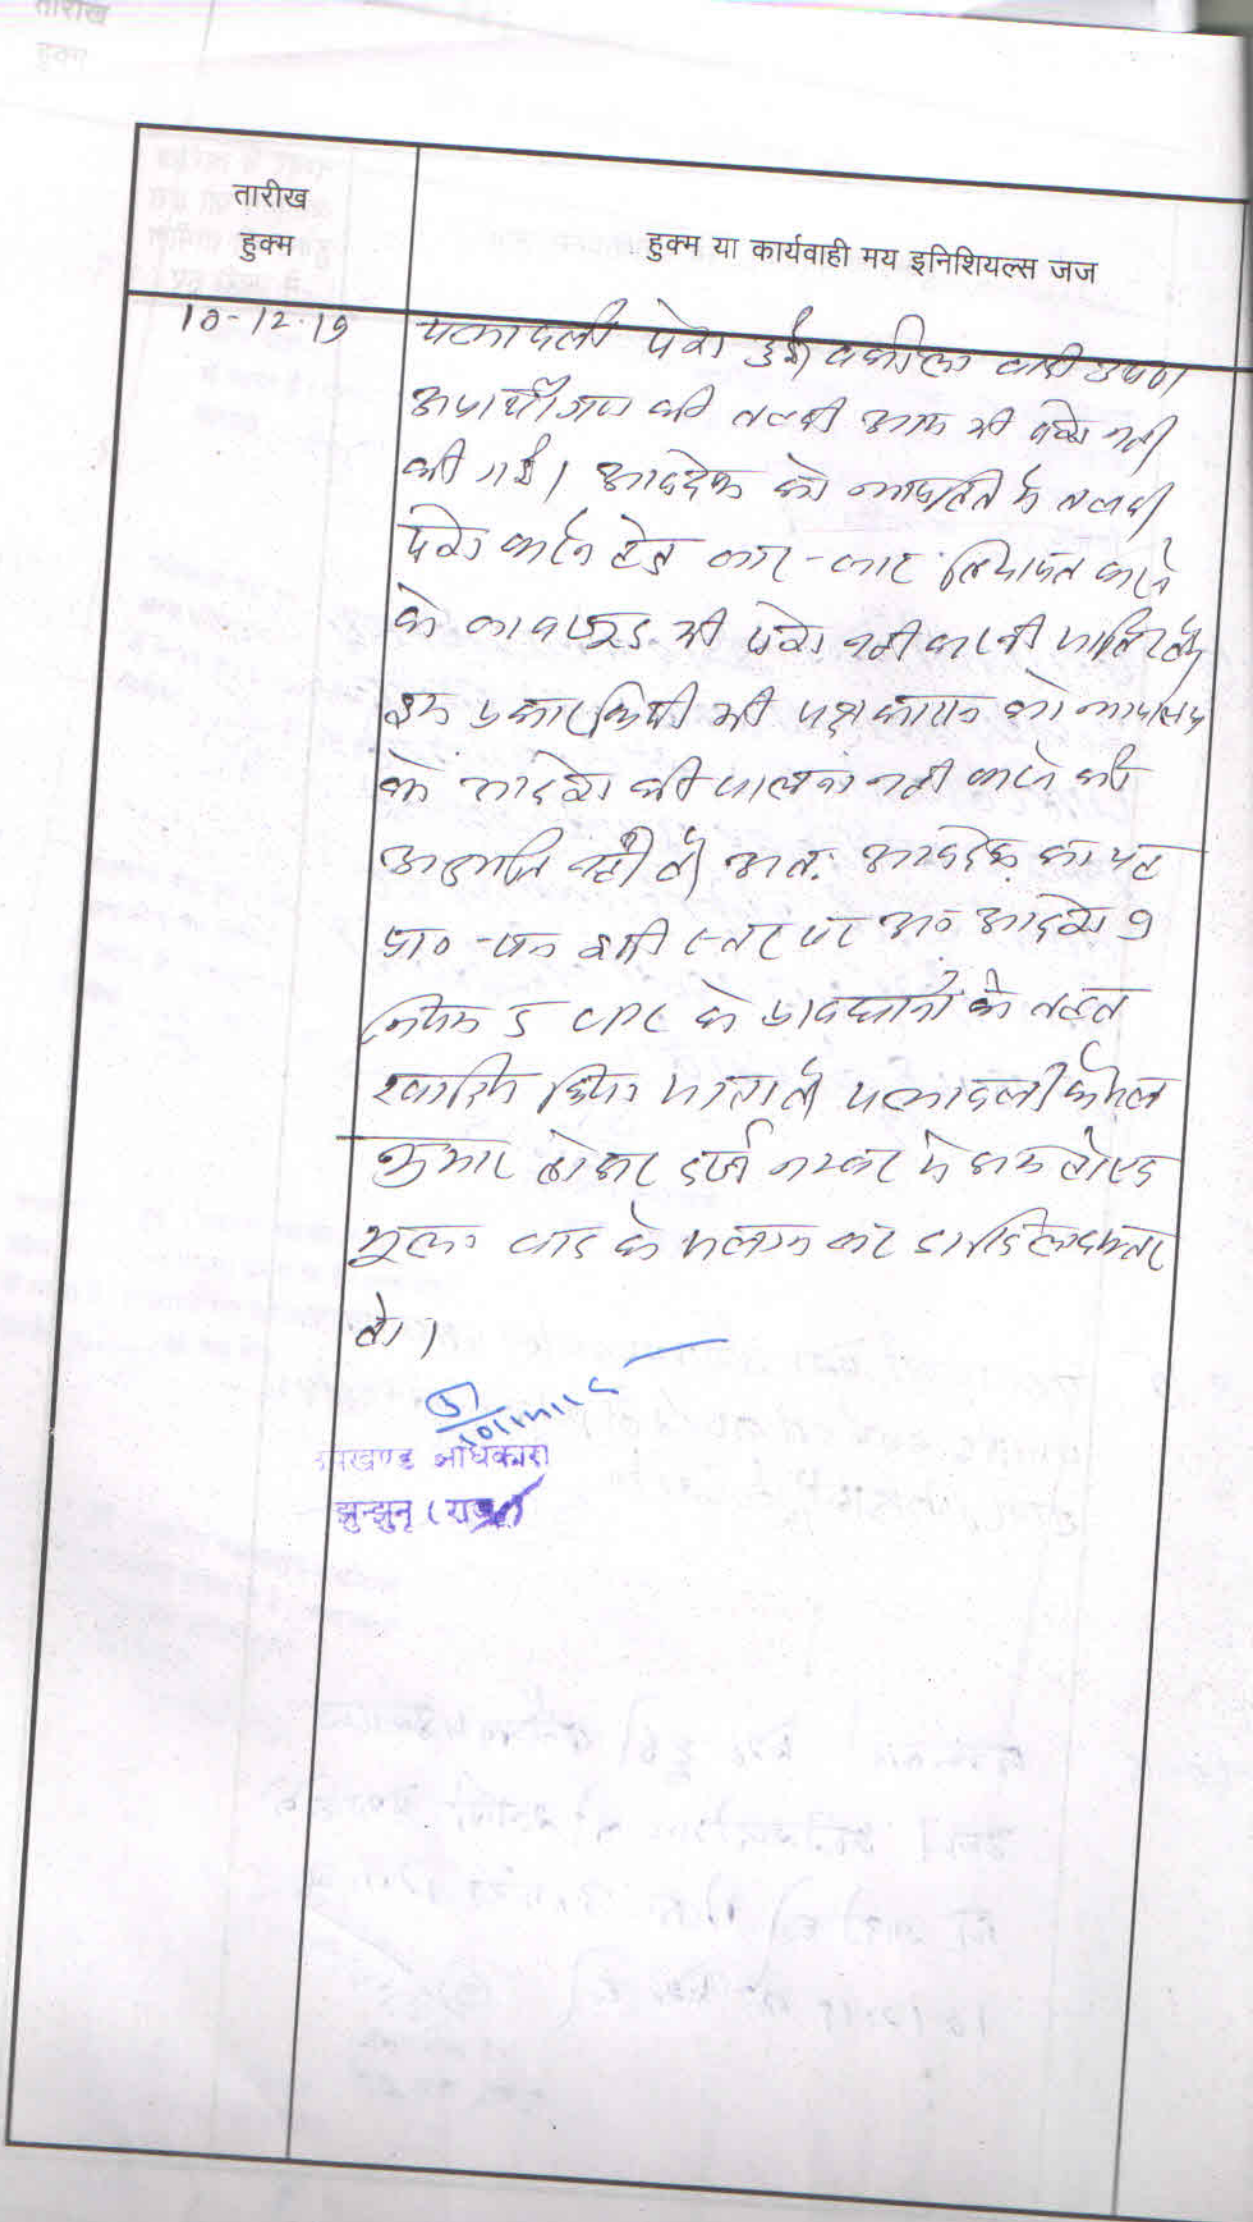 तारीख
हुक्म
तारीख
हुक्म
हुक्म या कार्यवाही मय इनिशियल्स जज
10-12-19
पत्रावली पेश हुई वकील वादी उप०
अप्रार्थीगण की तलबी आज भी पेश नही
की गई। आवेदक को न्यायहित मे तलबी
पेश करने हेतु बार-बार करने
के बावजूद भी पेश नही करनी
इस प्रकार किसी भी पक्षकारान को न्यायालय
के आदेश की पालना नही करने की
नही है अतः आवेदक का यह
प्रा० पत्र इसी स्तर पर अ० आदेश 9
नियम 5 CPC के प्रावधानो के तहत
खारिज किया जाता है पत्रावली फैसल
शुमार होकर दर्ज नम्बर से कम होकर
मूल वाद के संलग्न कर दाखिल दफ्तर
हो।
उपखण्ड अधिकारी
झुन्झुनू (राज०)